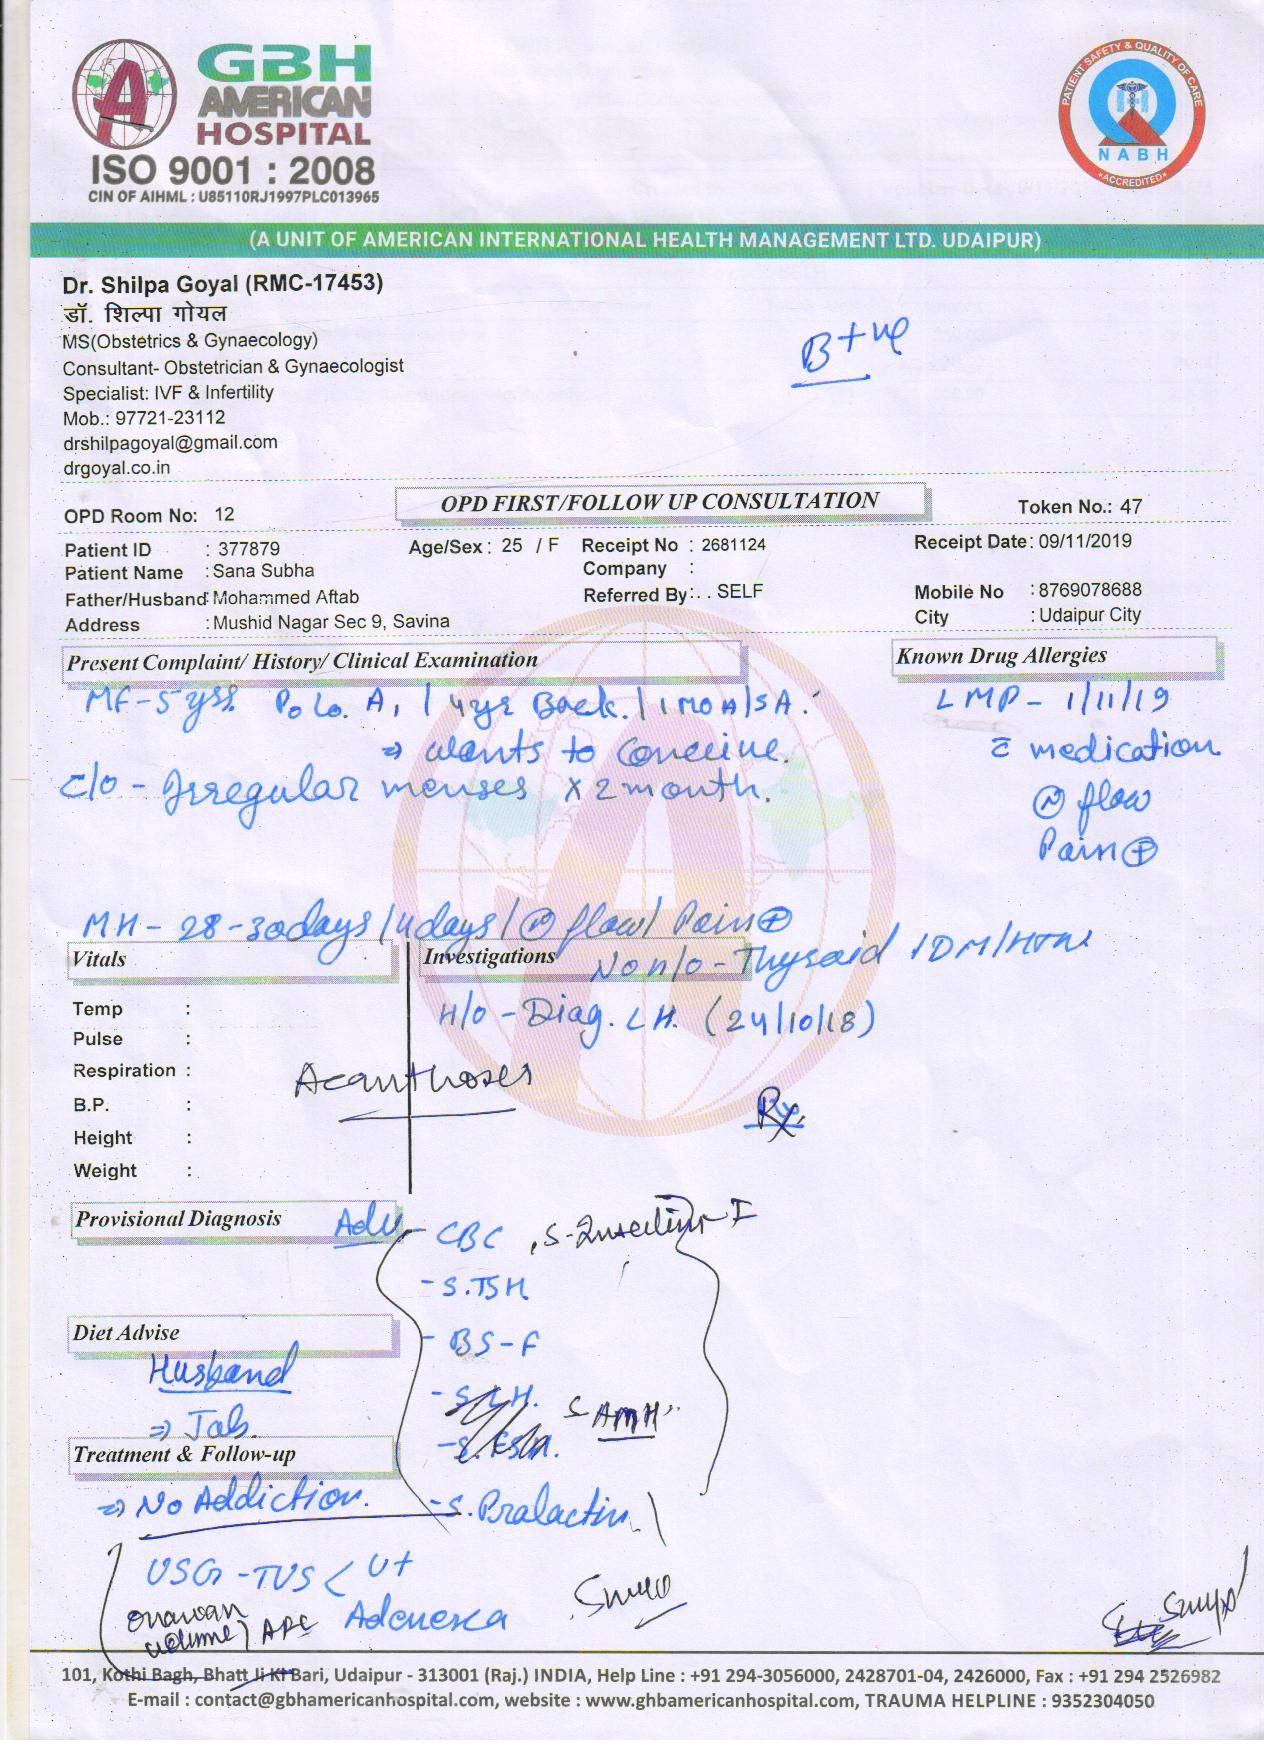 GBH
AMERICAN
HOSPITAL
ISO 9001 : 2008
CIN OF AIHML : U85110RJ1997PLC013965
PATIENT SAFETY & QUALITY OF CARE
NABH
ACCREDITED
(A UNIT OF AMERICAN INTERNATIONAL HEALTH MANAGEMENT LTD. UDAIPUR)
Dr. Shilpa Goyal (RMC-17453)
डॉ. शिल्पा गोयल
MS(Obstetrics & Gynaecology)
Consultant- Obstetrician & Gynaecologist
Specialist: IVF & Infertility
Mob.: 97721-23112
drshilpagoyal@gmail.com
drgoyal.co.in
B+ve
OPD Room No: 12 OPD FIRST/FOLLOW UP CONSULTATION Token No.: 47
Patient ID : 377879 Age/Sex : 25 / F Receipt No : 2681124 Receipt Date : 09/11/2019
Patient Name : Sana Subha Company :
Father/Husband : Mohammed Aftab Referred By : . . SELF Mobile No : 8769078688
Address : Mushid Nagar Sec 9, Savina City : Udaipur City
Present Complaint/ History/ Clinical Examination Known Drug Allergies
MF-5yrs. P0 L0. A1 / 4yr Back. / 1 MOA/SA. LMP - 1/11/19
⇒ wants to Conceive. c̄ medication
C/o - Irregular menses x 2 month. Ⓝ flow
Pain ⊕
MH - 28-30days/4days/Ⓝ flow/ Pain ⊕
Vitals Investigations
No h/o - Thyroid /DM/HTN
H/O - Diag. LH. (24/10/18)
Temp :
Pulse :
Respiration :
B.P. :
Height :
Weight :
Acanthoses
Rx
Provisional Diagnosis Adv - CBC , S-Insulin F
- S.TSH
Diet Advise - BS-F
Husband - S.LH. S AMH
⇒ Job. - S.FSH.
Treatment & Follow-up
⇒ No Addiction. - S. Prolactin
USG - TVS < Ut
Adenexa
ovarian
volume AFC
101, Kothi Bagh, Bhatt Ji Ki Bari, Udaipur - 313001 (Raj.) INDIA, Help Line : +91 294-3056000, 2428701-04, 2426000, Fax : +91 294 2526982
E-mail : contact@gbhamericanhospital.com, website : www.ghbamericanhospital.com, TRAUMA HELPLINE : 9352304050